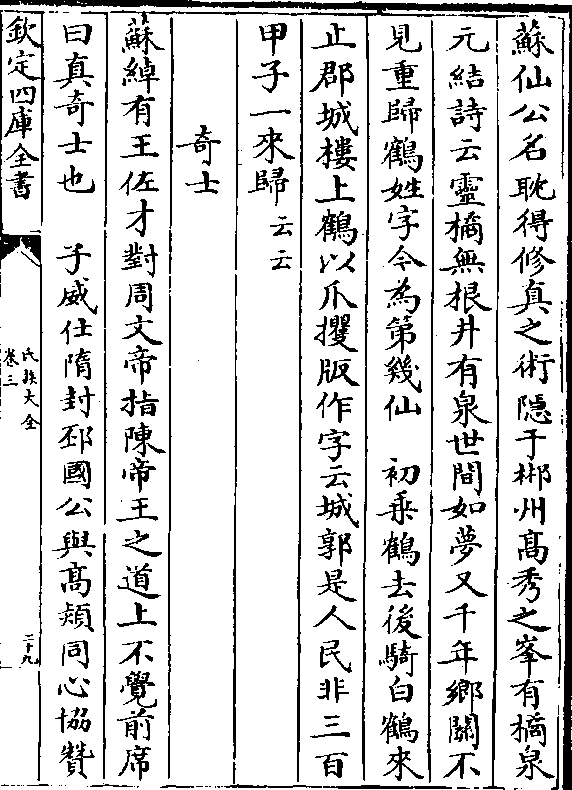 蘇仙公名耽得修真之術隠于郴州髙秀之峯有橘泉
元結詩云靈橘無根井有泉世間如夢又千年鄉關不
見重歸鶴姓字今為第幾仙　初乗鶴去後騎白鶴來
止郡城樓上鶴以爪攫版作字云城郭是人民非三百
甲子一來歸云云
奇士
蘇綽有王佐才對周文帝指陳帝王之道上不覺前席
曰真奇士也　子威仕隋封邳國公與髙熲同心協贊
欽定四庫全書
氏族大全
卷三
二十九